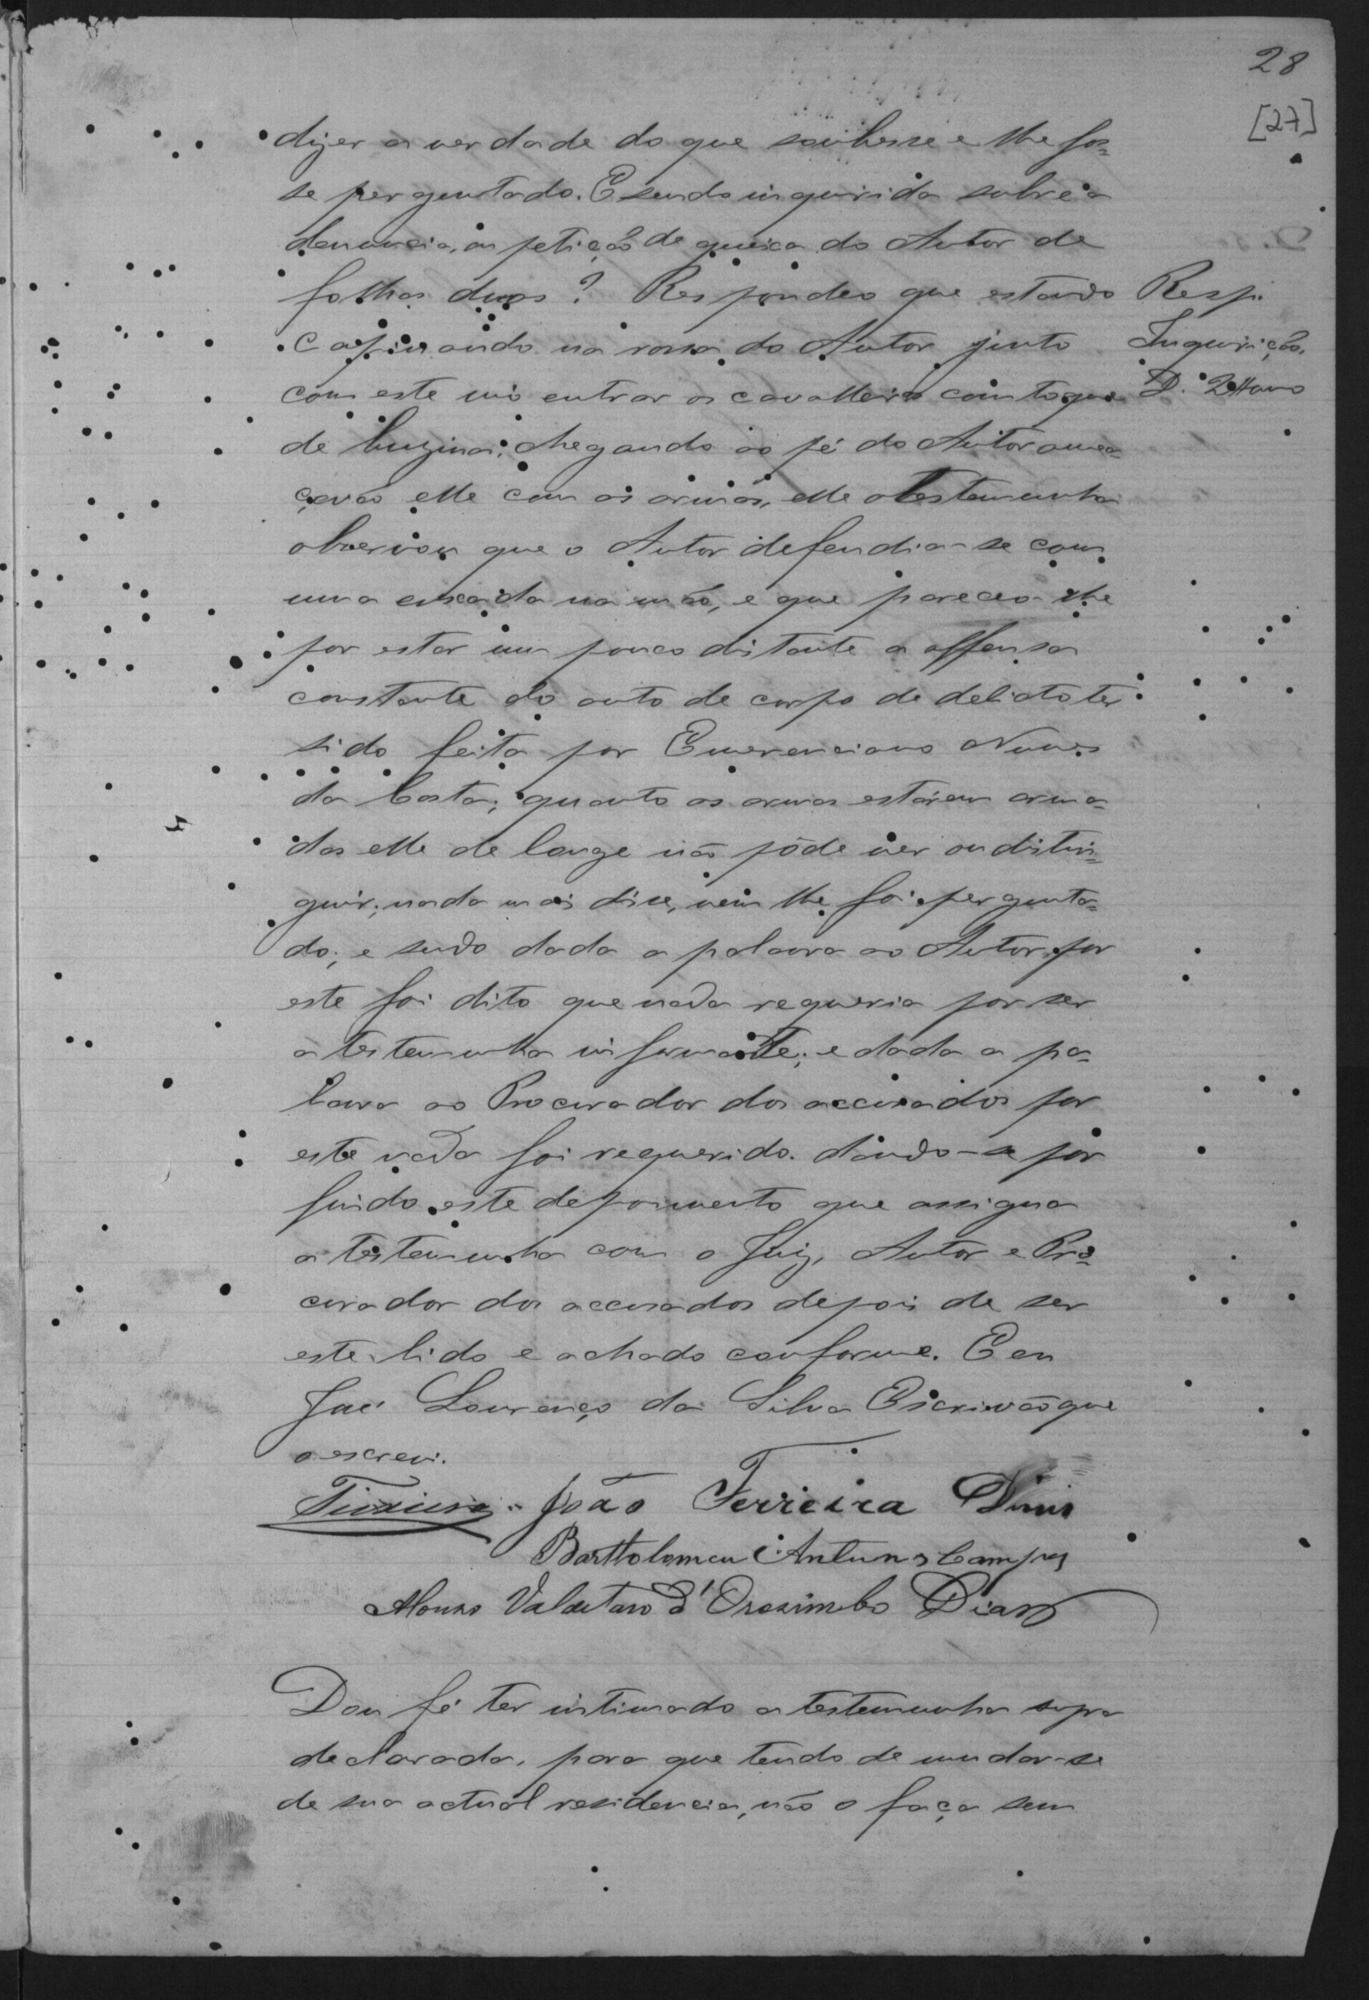 28
[27]
dizer a verdade do que soubesse e lhe fos=
se perguntado. E sendo inquirida sobre a
denuncia, ou petição de queixa do Autor de
folhas duas? Respondeo que estando
Resp.
capinando na rossa do Autor junto
Inquirição
com este vio entrar os cavalleiros com toque
D.
de buzina; chegando ao pé do Autor amea=
çavão elle com as armas, elle a testemunha
observou que o Autor defendia-se com
uma enxada na mão, e que pareceo-lhe
por estar um pouco distante a offensa
constante do auto de corpo de delicto ter
sido feita por Emerenciano Nunes
da Costa; quanto as armas estárem arma=
das elle de longe não pôde ver ou distin=
guir; nada mais disse, nem lhe foi pergunta=
do; e sendo dada a palavra ao Autor por
este foi dito que nada requeria por ser
a testemunha informante; e dada a pa=
lavra ao Procurador dos accusados por
este nada foi requerido. dando-se por
findo este depoimento que assigna
a testemunha com o Juiz, Autor e Pro=
curador dos accusados depois de ser
este lido e achado conforme. E eu
José Lourenço da Silva Escrivão que
o escrevi.
Teixeira. João Ferreira Diniz
Bartholomeu Antunes Campos
Alonso Valdetaro d'Orosimbo Dias
Dou fé ter intimado a testemunha supra
declarada, para que tendo de mudar-se
de sua actual residencia, não o faça sem